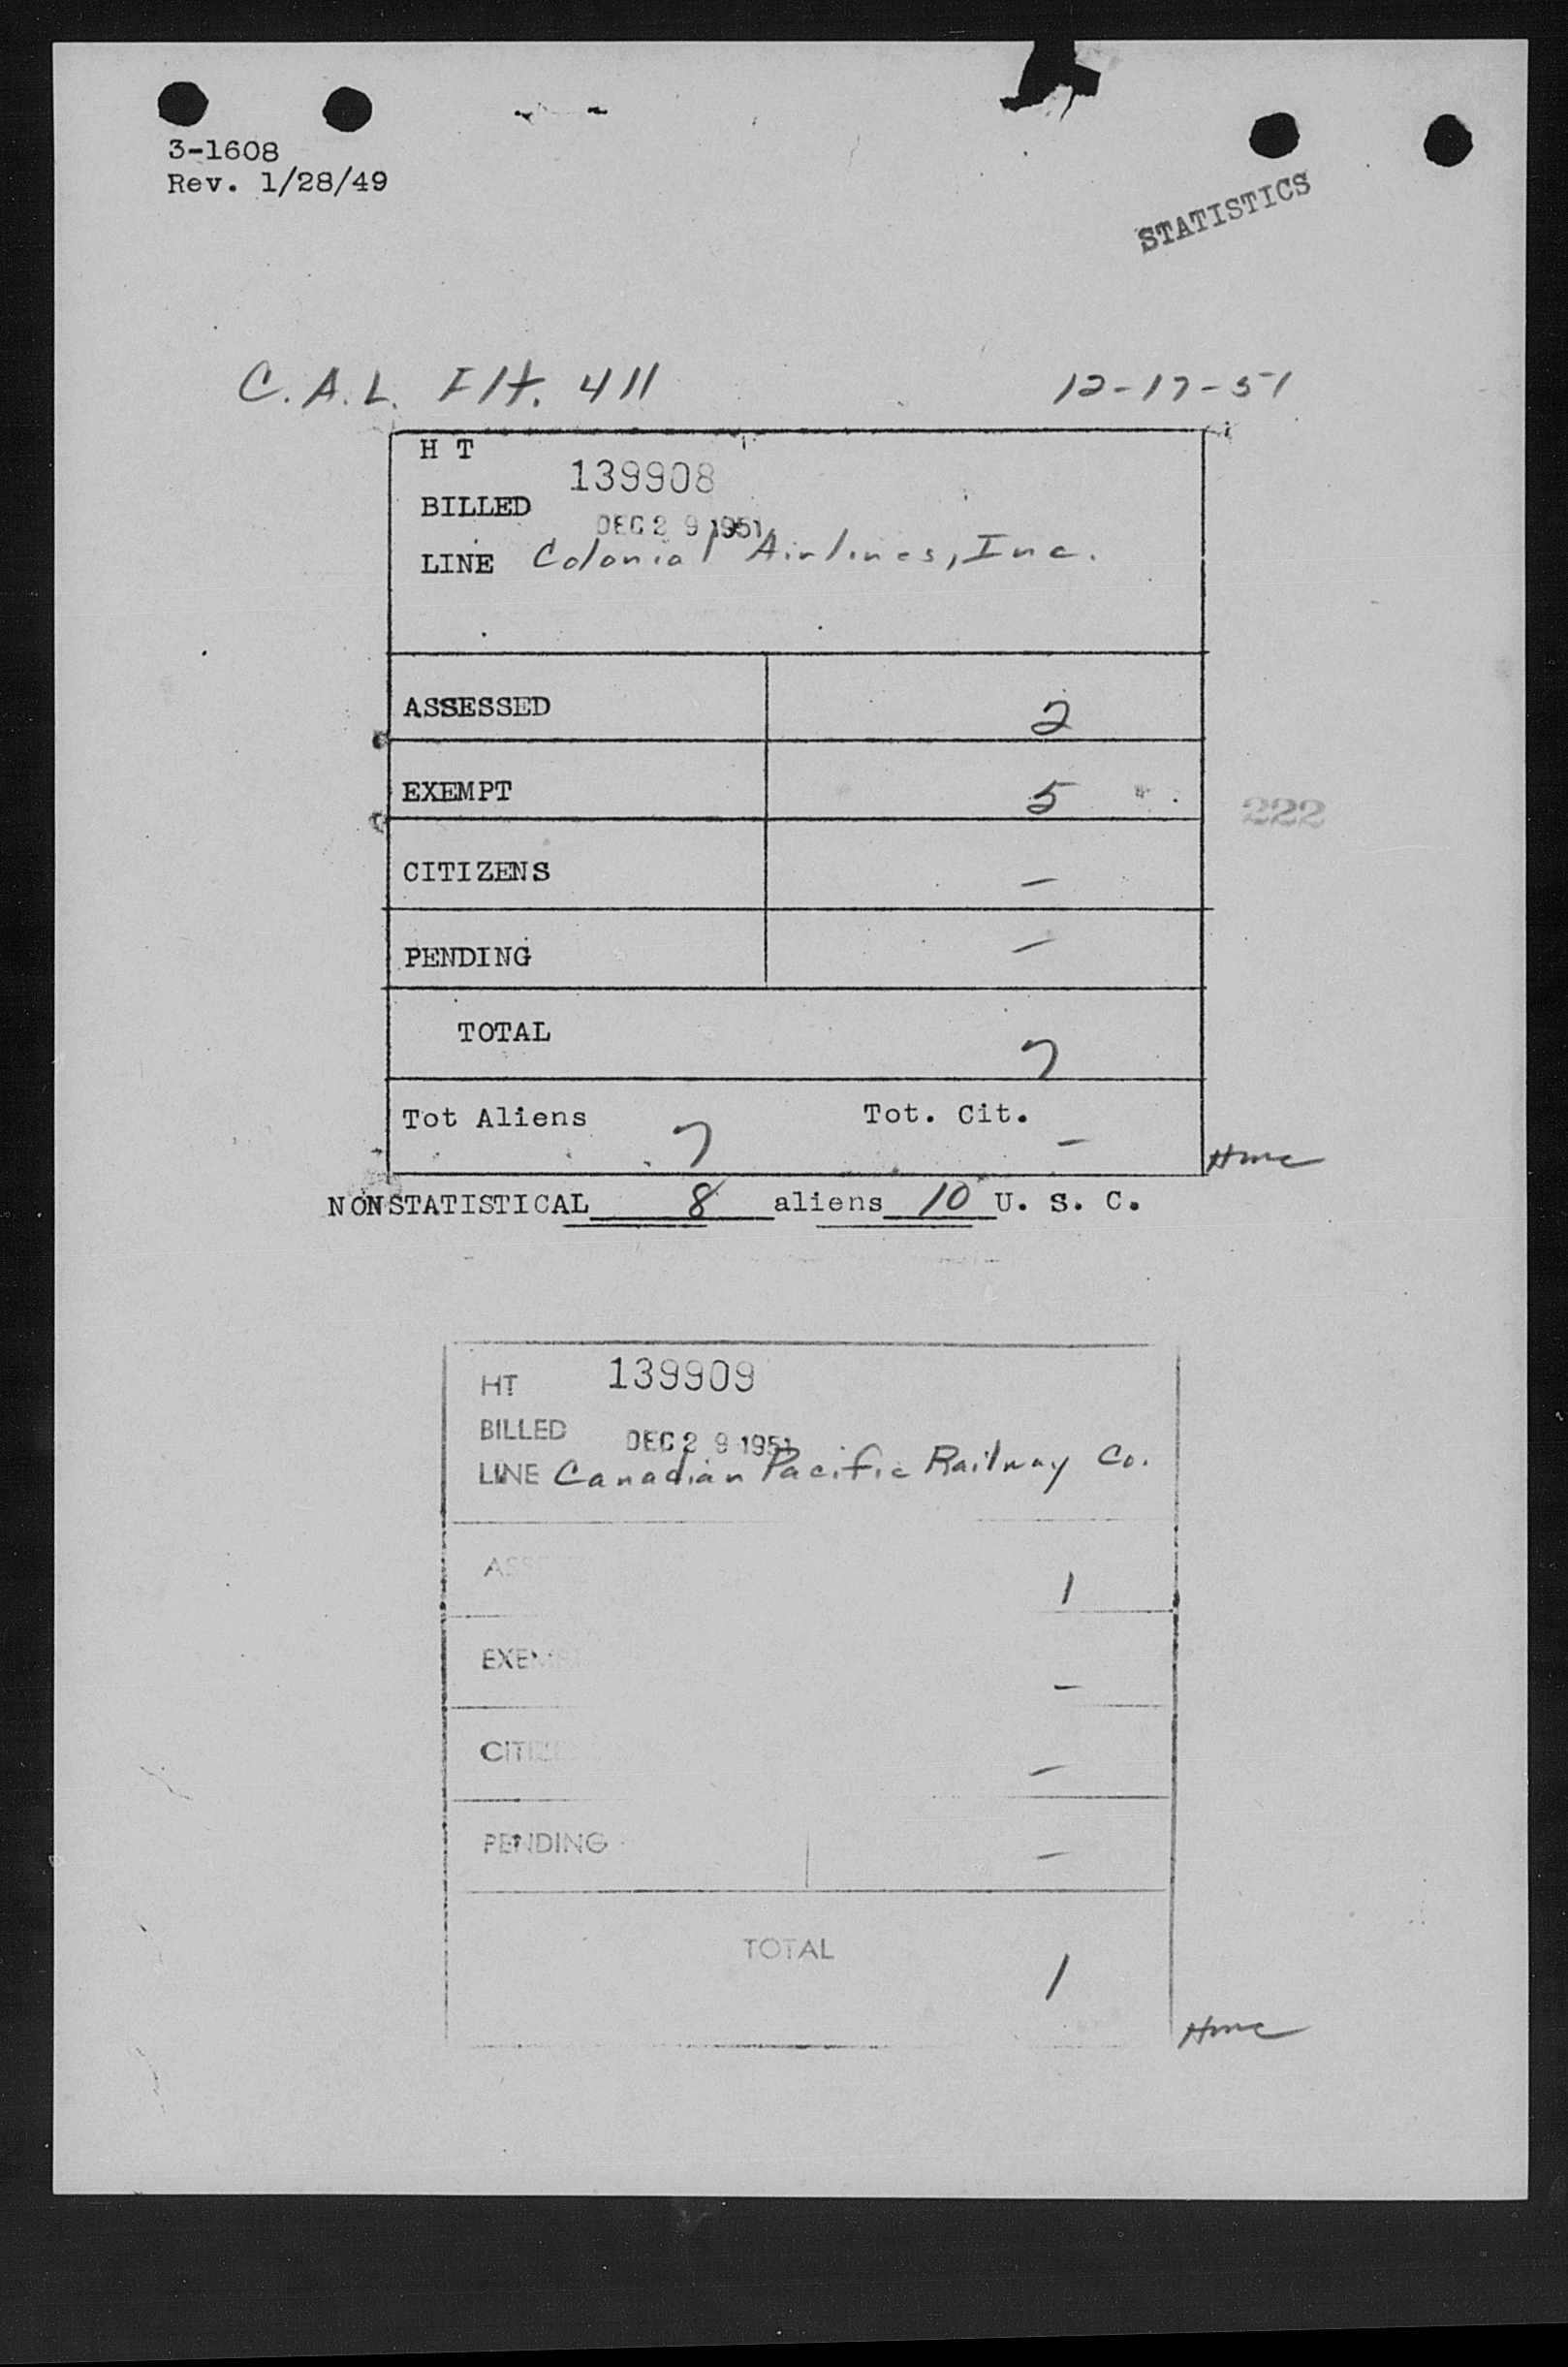 3-1608
Rev. 1/28/49
STATISTICS
C.A.L. Flt. 411 12-17-51
H T 139908
BILLED DEC 29 1951
LINE Colonial Airlines, Inc.
ASSESSED 2
EXEMPT 5
222
CITIZENS -
PENDING -
TOTAL 7
Tot Aliens 7 Tot. Cit. -
Hmc
NONSTATISTICAL 8 aliens 10 U. S. C.
HT 139909
BILLED DEC 29 1951
LINE Canadian Pacific Railway Co.
1
EXEMPT -
-
PENDING -
TOTAL 1
Hmc